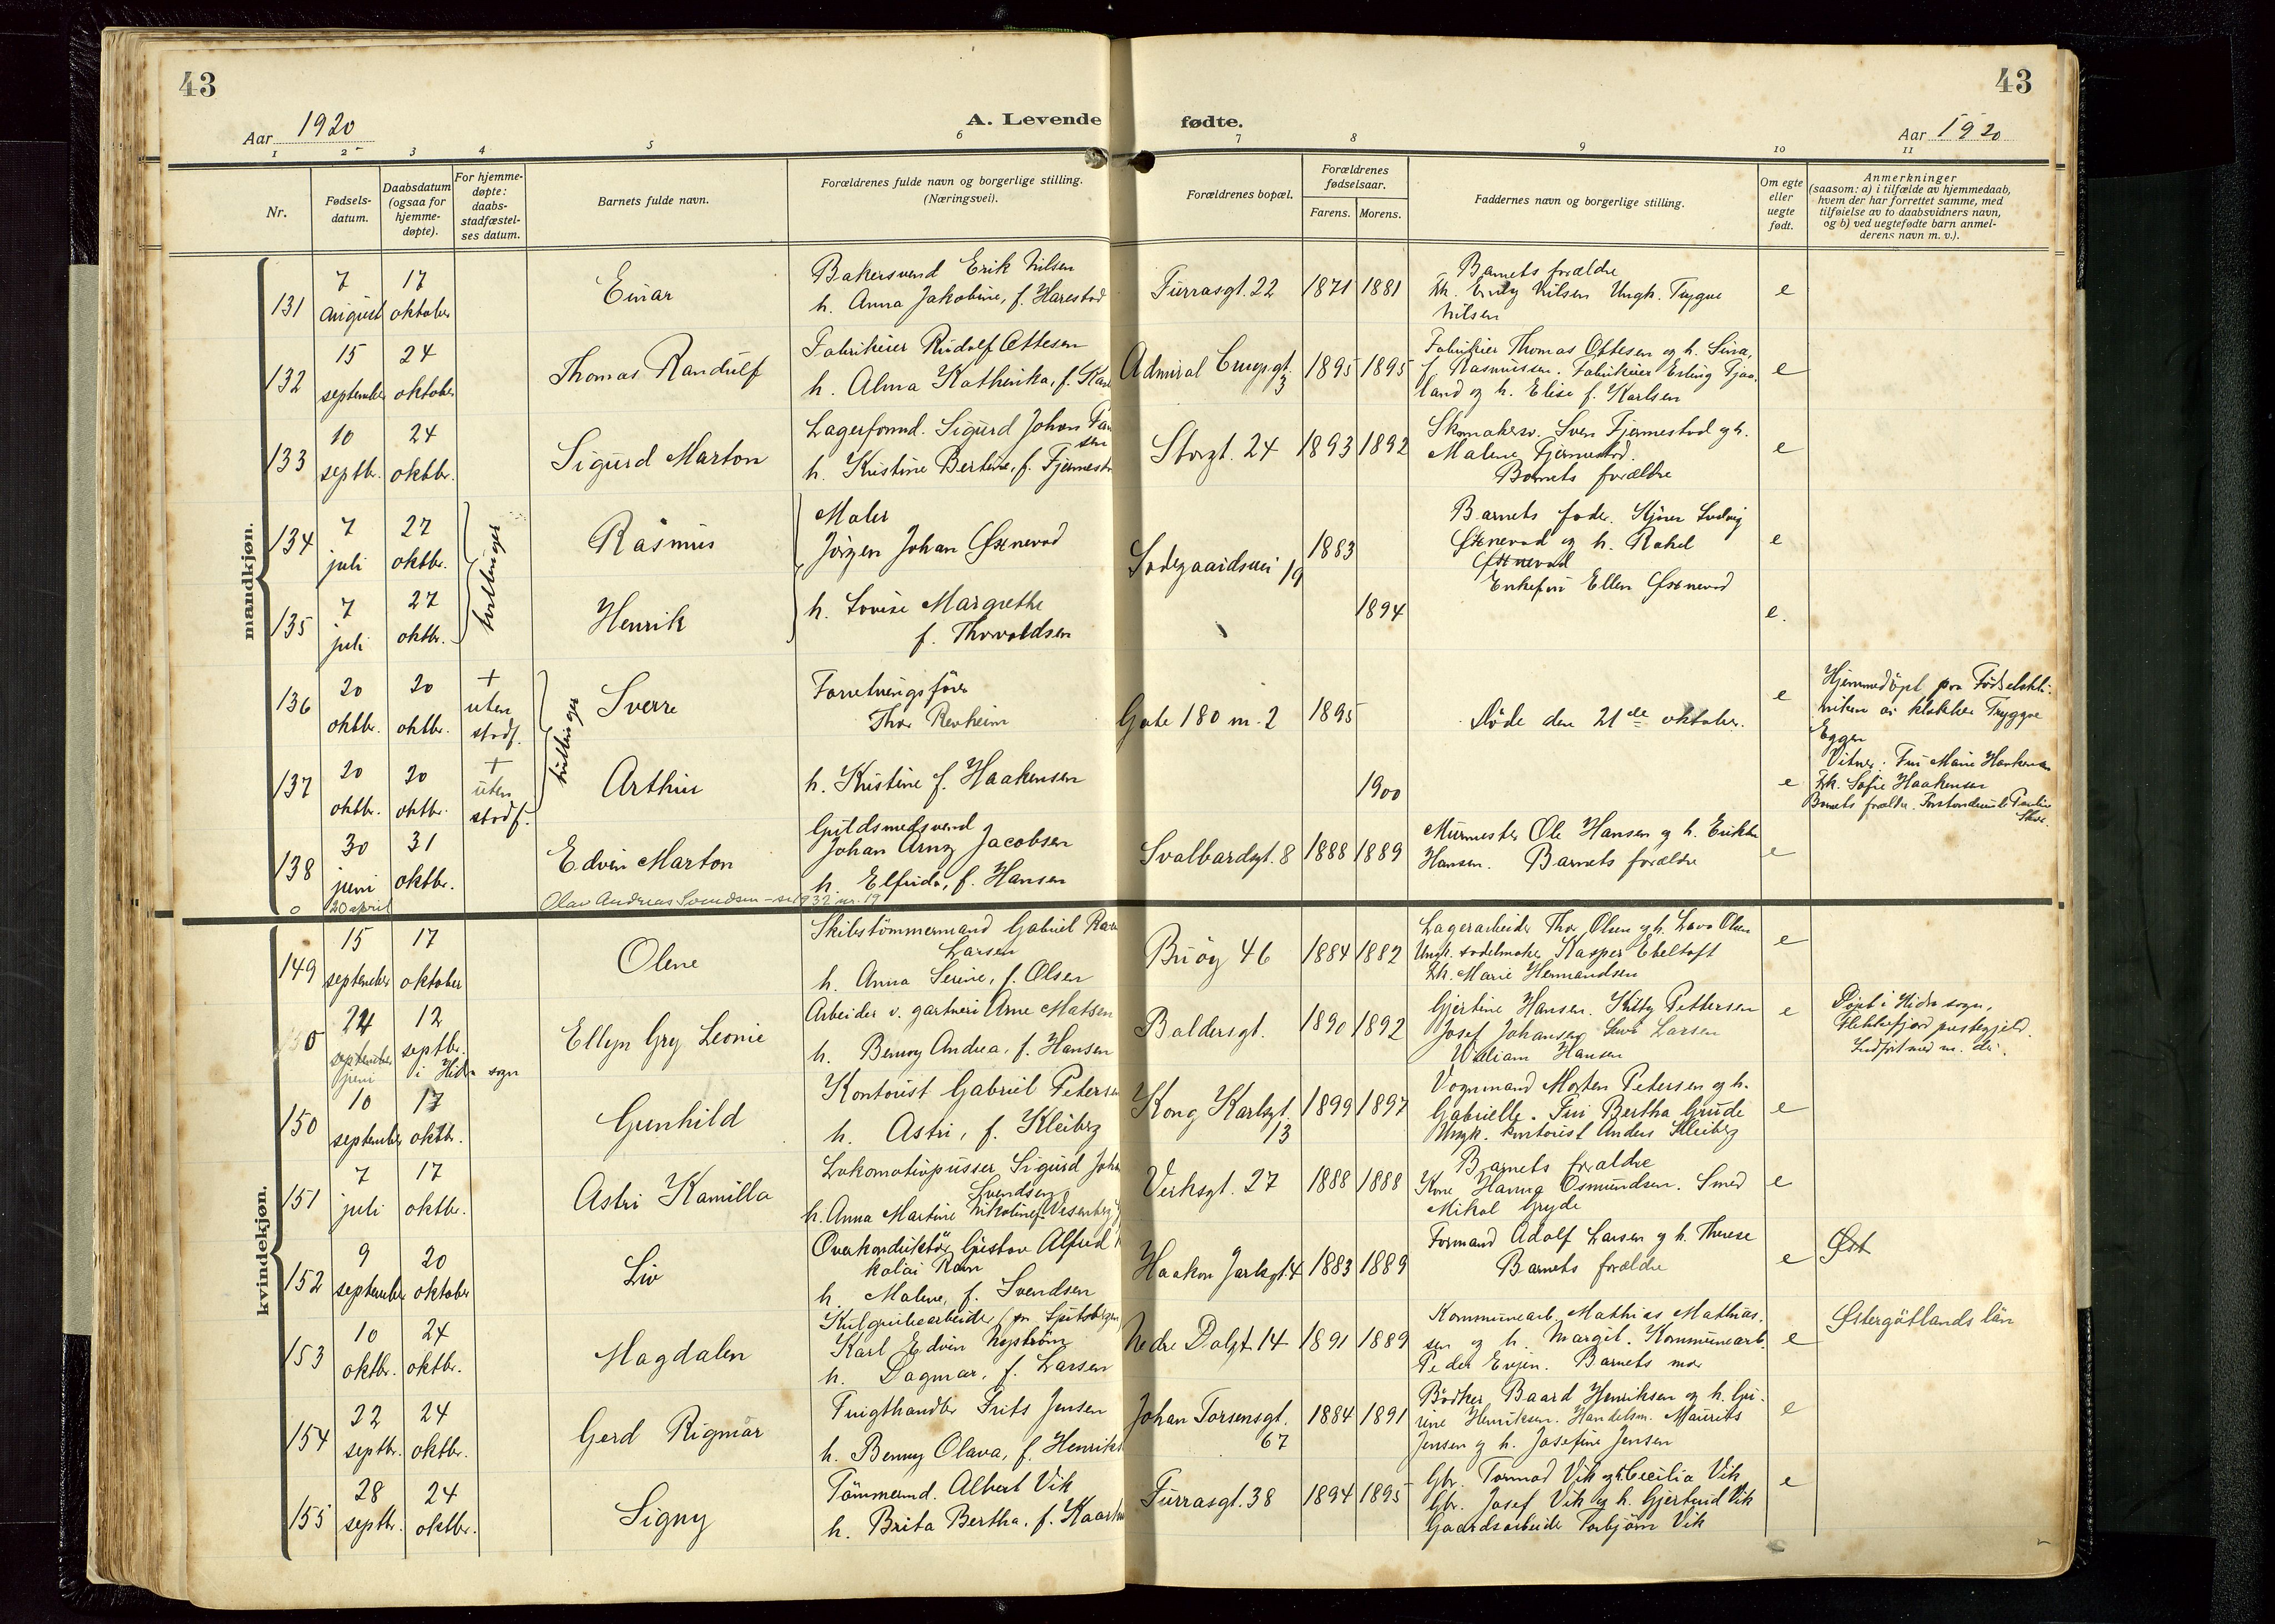 43
43
Aar 1920
A. Levende fødte.
Aar 1920
1 2 3 4 5 6 7 8 9 10 11
Nr.
Fødsels-
datum.
Daabsdatum
(ogsaa for
hjemme-
døpte).
For hjemme-
døpte:
daabs-
stadfæstel-
ses datum.
Barnets fulde navn.
Forældrenes fulde navn og borgerlige stilling.
(Næringsvei).
Forældrenes bopæl.
Forældrenes
fødselsaar.
Farens. Morens.
Faddernes navn og borgerlige stilling.
Om egte
eller
uegte
født.
Anmerkninger
(saasom: a) i tilfælde av hjemmedaab,
hvem der har forrettet samme, med
tilføielse av to daabsvidners navn,
og b) ved uegtefødte barn anmel-
derens navn m. v.).
mandkjøn.
131
7
august
17
oktober
Einar
Bakersvend Erik Nilsen
h. Anna Jakobine, f. Harestad
Turrasgt. 22
1871 1881
Barnets forældre
Nilsen Ungk. Trygve
Nilsen
e
132
15
september
24
oktober
Thomas Randulf
Fabrikeier Rudolf Ottesen
h. Alma Kathinka, f.
Admiral Cruys gt.
3
1895 1895
Fabrikeier Thomas Ottesen og h. Sina,
f. Rasmussen. Fabrikeier Erling Tjaa-
land og h. Elise f. Karlsen
e
133
10
septbr.
24
oktbr.
Sigurd Marton
Lagerformd. Sigurd Johan
sen
h. Kristine Bertine, f. Fjermestad
Storgt. 24
1893 1892
Skomakersv. Sven Fjermestad og h.
Malene Fjermestad.
Barnets forældre
e
134
7
juli
27
oktbr.
tvillinger
Rasmus
Maler
Jörgen Johan Øxnevad
Sodegaardsvei 19
1883
Barnets fader. Ludvig
Øxnevad og h. Rakel
Øxnevad
Enkefru Ellen Øxnevad
e
135
7
juli
27
oktbr.
Henrik
h. Lovise Margrethe
f. Thorvaldsen
1894
e.
136
20
oktbr.
20
oktbr.
+
uten
stadf.
tvillinger
Sverre
Forretningsförer
Thor Revheim
Gate 180 m. 2
1895
Döde den 21de oktober.
e
Hjemmedöpt paa Födselskli-
niken av klokker Tryggve
Eggen
Vitner. Fru Marie Haakensen
137
20
oktbr.
20
oktbr.
+
uten
stadf.
Arthur
h. Kristine f. Haakensen
1900
e
Frk. Sofie Haakensen
Barnets forældre.
138
30
juni
31
oktbr.
Edvin Marton
Guldsmedsvend
Johan Jacobsen
h. Elfrida, f. Hansen
Svalbardsgt. 8
1888 1889
Murmester Ole Hansen og h.
Hansen. Barnets forældre
e
0
20 april
Olav Andreas Svendsen - se 1932 nr. 19
kvindekjøn.
149
15
september
17
oktober
Olene
Skibstömmermand Gabriel
Larsen
h. Anna Serine, f. Olsen
Buöy 46
1884 1882
Lagerarbeider Thor Olsen og h. Lava Olsen
Ungk. sadelmaker Kasper Ebeltoft
Frk. Marie Hermandsen
e
0
24
september
juni
12
septbr.
i Hidra sogn
Ellyn Gry Leonie
Arbeider v. gartneri Arne Matsen
h. Benny Andrea, f. Hansen
Baldersgt.
1890 1892
Gjertine Hansen. Kitty Pettersen
Josef Johansen Larsen
William Hansen
e
Döpt i Hidra sogn,
Flekkefjord prestegjeld.
150
10
september
17
oktbr.
Gunhild
Kontorist Gabriel Petersen
h. Astri, f. Kleiberg
Kong Karlsgt.
13
1899 1897
Vognmand Morten Petersen og h.
Gabrielle. Fru Bertha Grude
Ungk. kontorist Anders Kleiberg
e
151
7
juli
17
oktbr.
Astri Kamilla
Lokomotivpusser Sigurd Johan
Svendsen
h. Anna Martine Nikoline f.
Verksgt. 27
1888 1888
Barnets forældre
Kone Hanna Osmundsen. Smed
Mikal Gryde
e
152
9
september
20
oktober
Liv
Overkonduktör Gustav Alfred
kolai
h. Malene, f. Svendsen
Haakon Jarlsgt. 4
1883 1889
Formand Adolf Larsen og h. Therese
Barnets forældre
e
Øst
153
10
oktbr.
24
oktbr.
Magdalen
Kulgrubearbeider (paa Spitsbergen)
Karl Edvin Nyström
h. Dagmar, f. Larsen
Nedre Dalgt. 14
1891 1889
Kommunearb. Mathias Mathias-
sen og h. Margit. Kommunearb.
Peder Evjen. Barnets mor
e
Østergötlands län
154
22
septbr.
24
oktbr.
Gerd Rigmor
Frugthandler Frits Jensen
h. Benny Olava, f. Henriks
Johan Torsensgt.
67
1884 1891
Bödker Baard Henriksen og h. Gu-
rine Henriksen. Handelsm. Maurits
Jensen og h. Josefine Jensen
e
155
28
septbr.
24
oktbr.
Signy
Tömmermd. Albert Vik
h. Brita Bertha, f.
Turrasgt. 38
1894 1895
Gbr. Tormod Vik og h. Cecilia Vik
Gbr. Josef Vik og h. Gjertrud Vik
Gaardsarbeider Torbjörn Vik
e